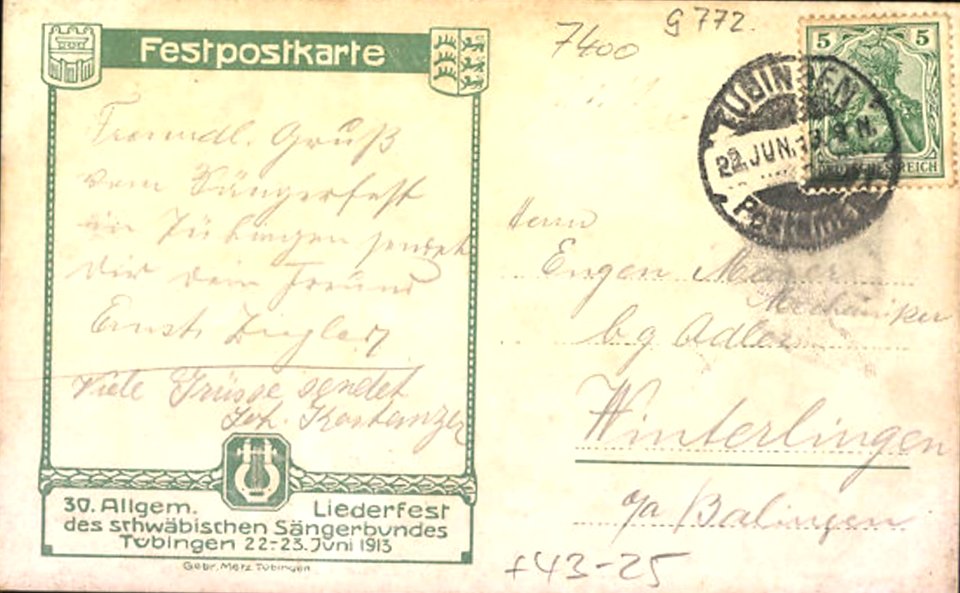 Festpostkarte
Freundl. Gruß
vom Sängerfest
in Tübingen sendet
dir dein Freund
Ernst Ziegler
Viele Grüsse sendet
Joh.
30. Allgem. Liederfest
des schwäbischen Sängerbundes
Tübingen 22-23. Juni 1913
Gebr. Metz Tübingen
7400
g 772.
5 5
DEUTSCHES REICH
TÜBINGEN
22.JUN.13. N.
Herrn
Eugen
Mechaniker
b/g Adler
Winterlingen
o/a Balingen
+43-25